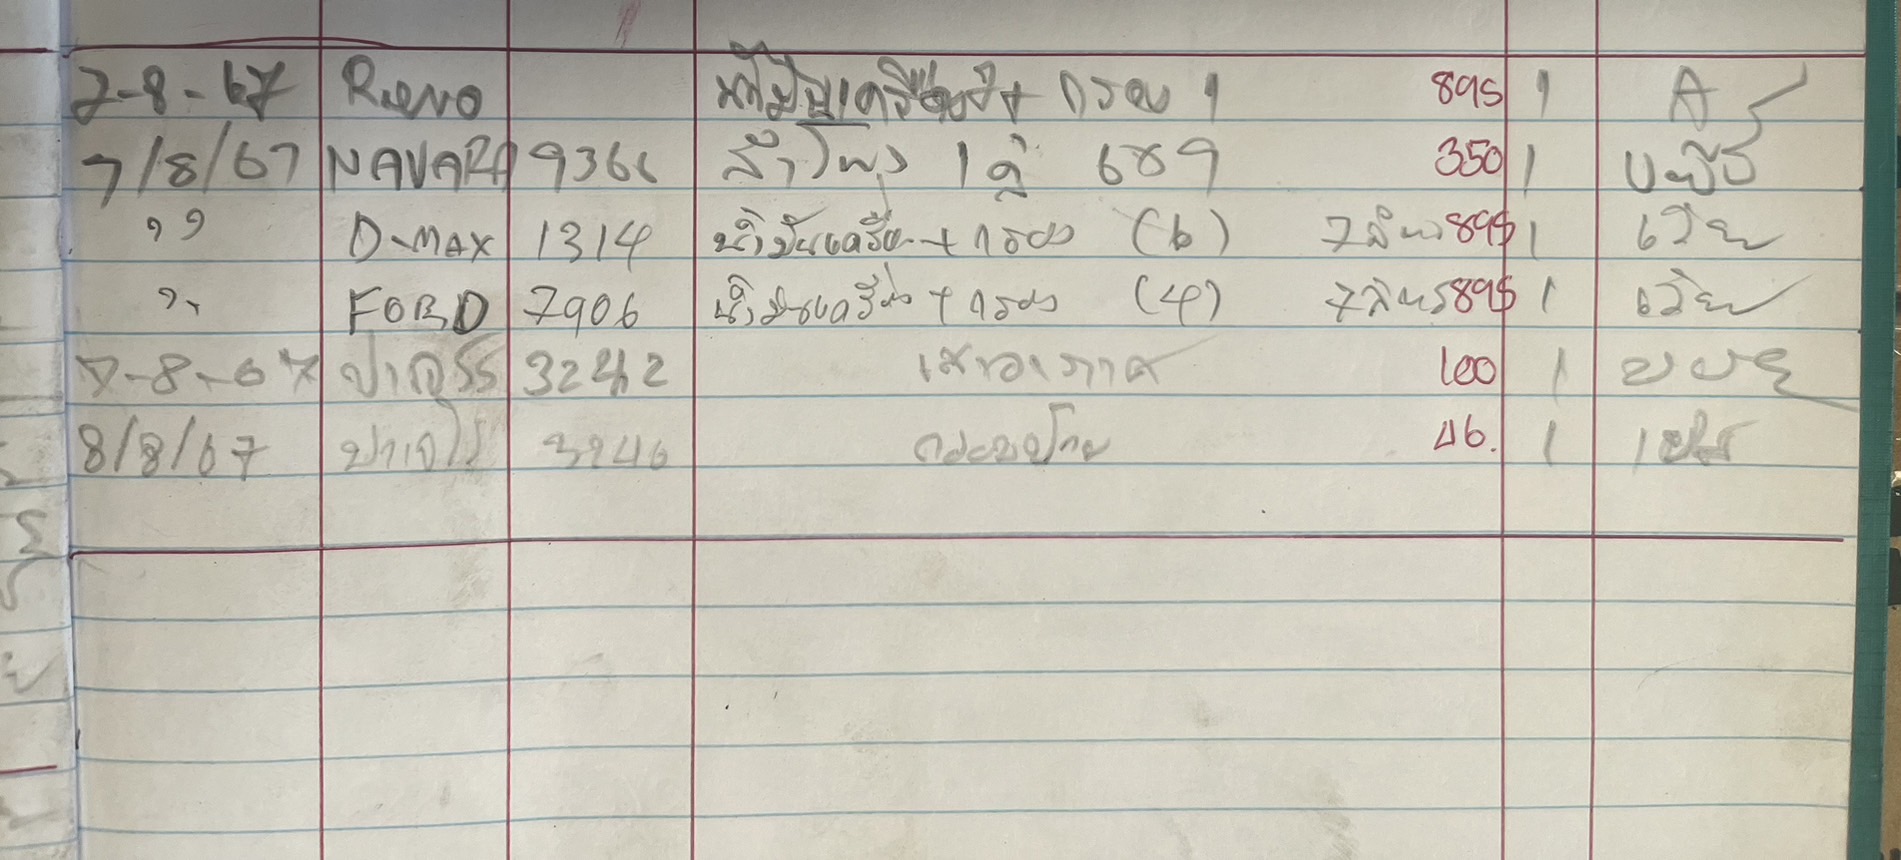 7-8-67 Reno น้ำมันเครื่อง + กรอง 1 895 1 A
7/8/67 NAVARA 9366 ลำโพง 1 คู่ 689 350 1
" D-MAX 1314 น้ำมันเครื่อง + กรอง (6) 7 ลิตร 895 1
" FORD 7906 น้ำมันเครื่อง + กรอง (4) 7 ลิตร 895 1
7-8-67 ปาเจโร 3242 100 1
8/8/67 ปาเจโร 3246 46. 1